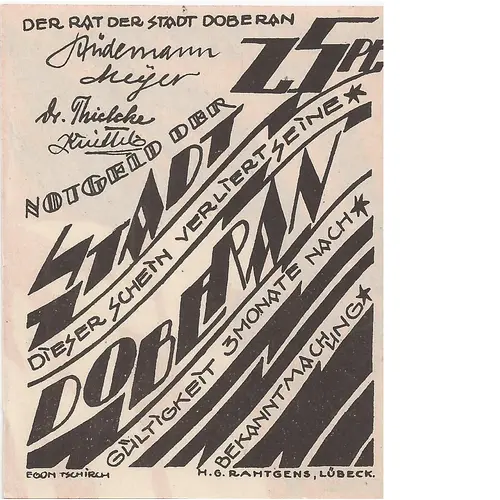 DER RAT DER STADT DOBERAN
25 Pf.
Meyer
Dr. Thielcke
NOTGELD DER
STADT
DIESER SCHEIN VERLIERT SEINE
DOBERAN
GÜLTIGKEIT 3 MONATE NACH
BEKANNTMACHUNG
EGON TSCHIRCH
H.G. RAHTGENS, LÜBECK.